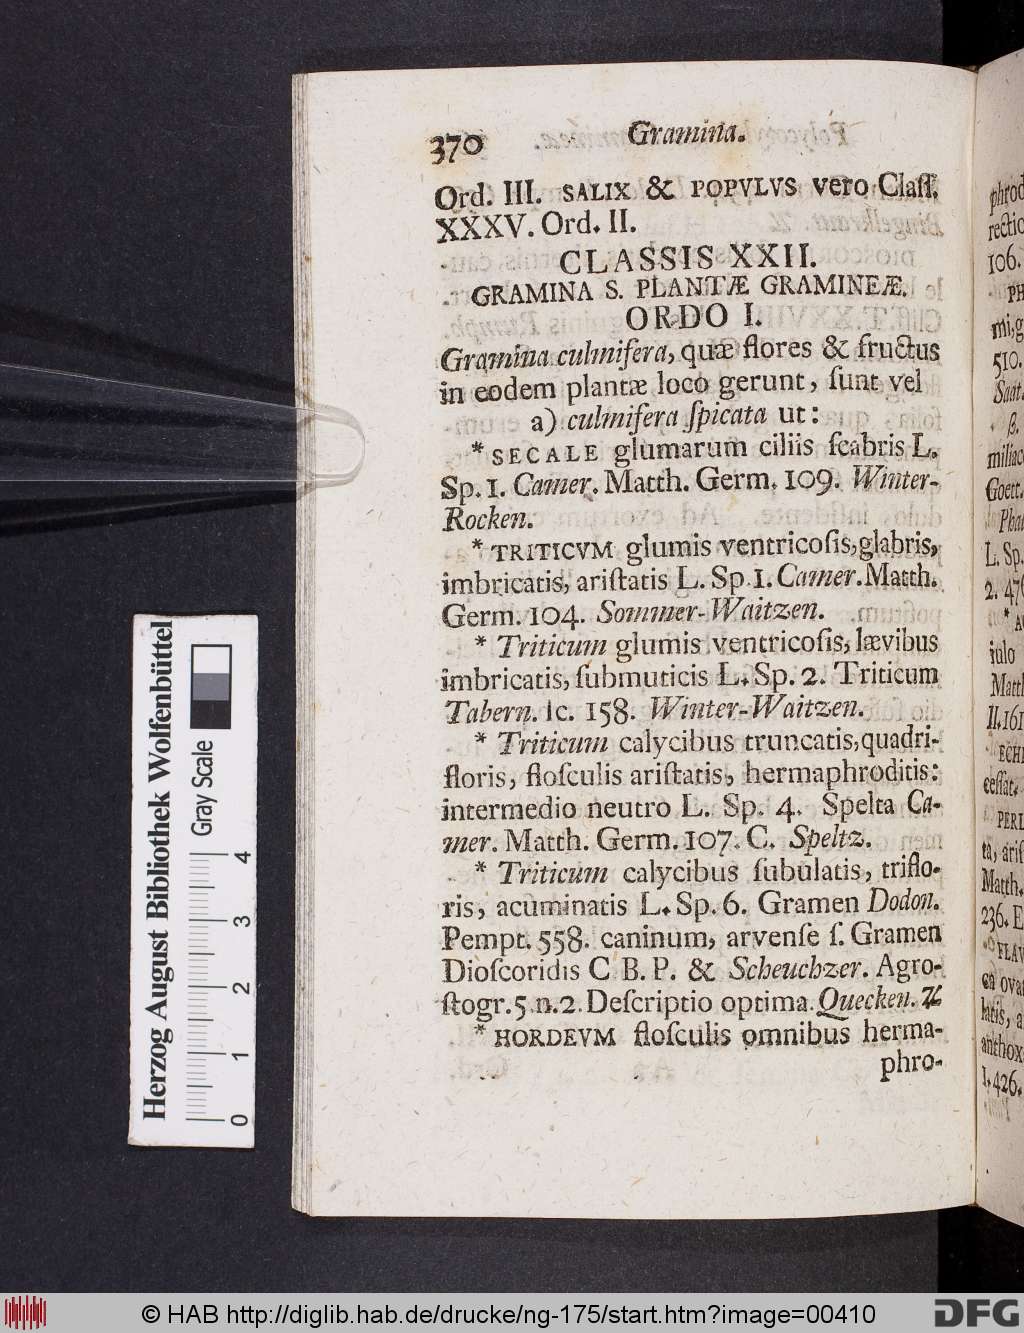 370 Gramina.
Ord. III. SALIX & POPVLVS vero Claſſ.
XXXV. Ord. II.
CLASSIS XXII.
GRAMINA S. PLANTÆ GRAMINEÆ.
ORDO I.
Gramina culmifera, quæ flores & fructus
in eodem plantæ loco gerunt, ſunt vel
a) culmifera ſpicata ut:
* SECALE glumarum ciliis ſcabris L.
Sp. 1. Camer. Matth. Germ. 109. Winter-
Rocken.
* TRITICVM glumis ventricoſis, glabris,
imbricatis, ariſtatis L. Sp. 1. Camer. Matth.
Germ. 104. Sommer-Waitzen.
* Triticum glumis ventricoſis, lævibus
imbricatis, ſubmuticis L. Sp. 2. Triticum
Tabern. Ic. 158. Winter-Waitzen.
* Triticum calycibus truncatis, quadri-
floris, floſculis ariſtatis, hermaphroditis:
intermedio neutro L. Sp. 4. Spelta Ca-
mer. Matth. Germ. 107. C. Speltz.
* Triticum calycibus ſubulatis, triflo-
ris, acuminatis L. Sp. 6. Gramen Dodon.
Pempt. 558. caninum, arvenſe ſ. Gramen
Dioſcoridis C B. P. & Scheuchzer. Agro-
ſtogr. 5. n. 2. Deſcriptio optima. Quecken. ♃
* HORDEVM floſculis omnibus herma-
phro-
phrod
rectio
106.
PH
mi, g
510.
Saat.
β.
miliac
Goett.
Phal
L. Sp.
2. 476
iulo
Matth
II. 161
ECHI
ceſſat.
PERL
ta, ariſ
Matth.
236. E
FLAV
ovat
latis, a
anthox
I. 426.
Herzog August Bibliothek Wolfenbüttel
Gray Scale
0 1 2 3 4
© HAB http://diglib.hab.de/drucke/ng-175/start.htm?image=00410
DFG